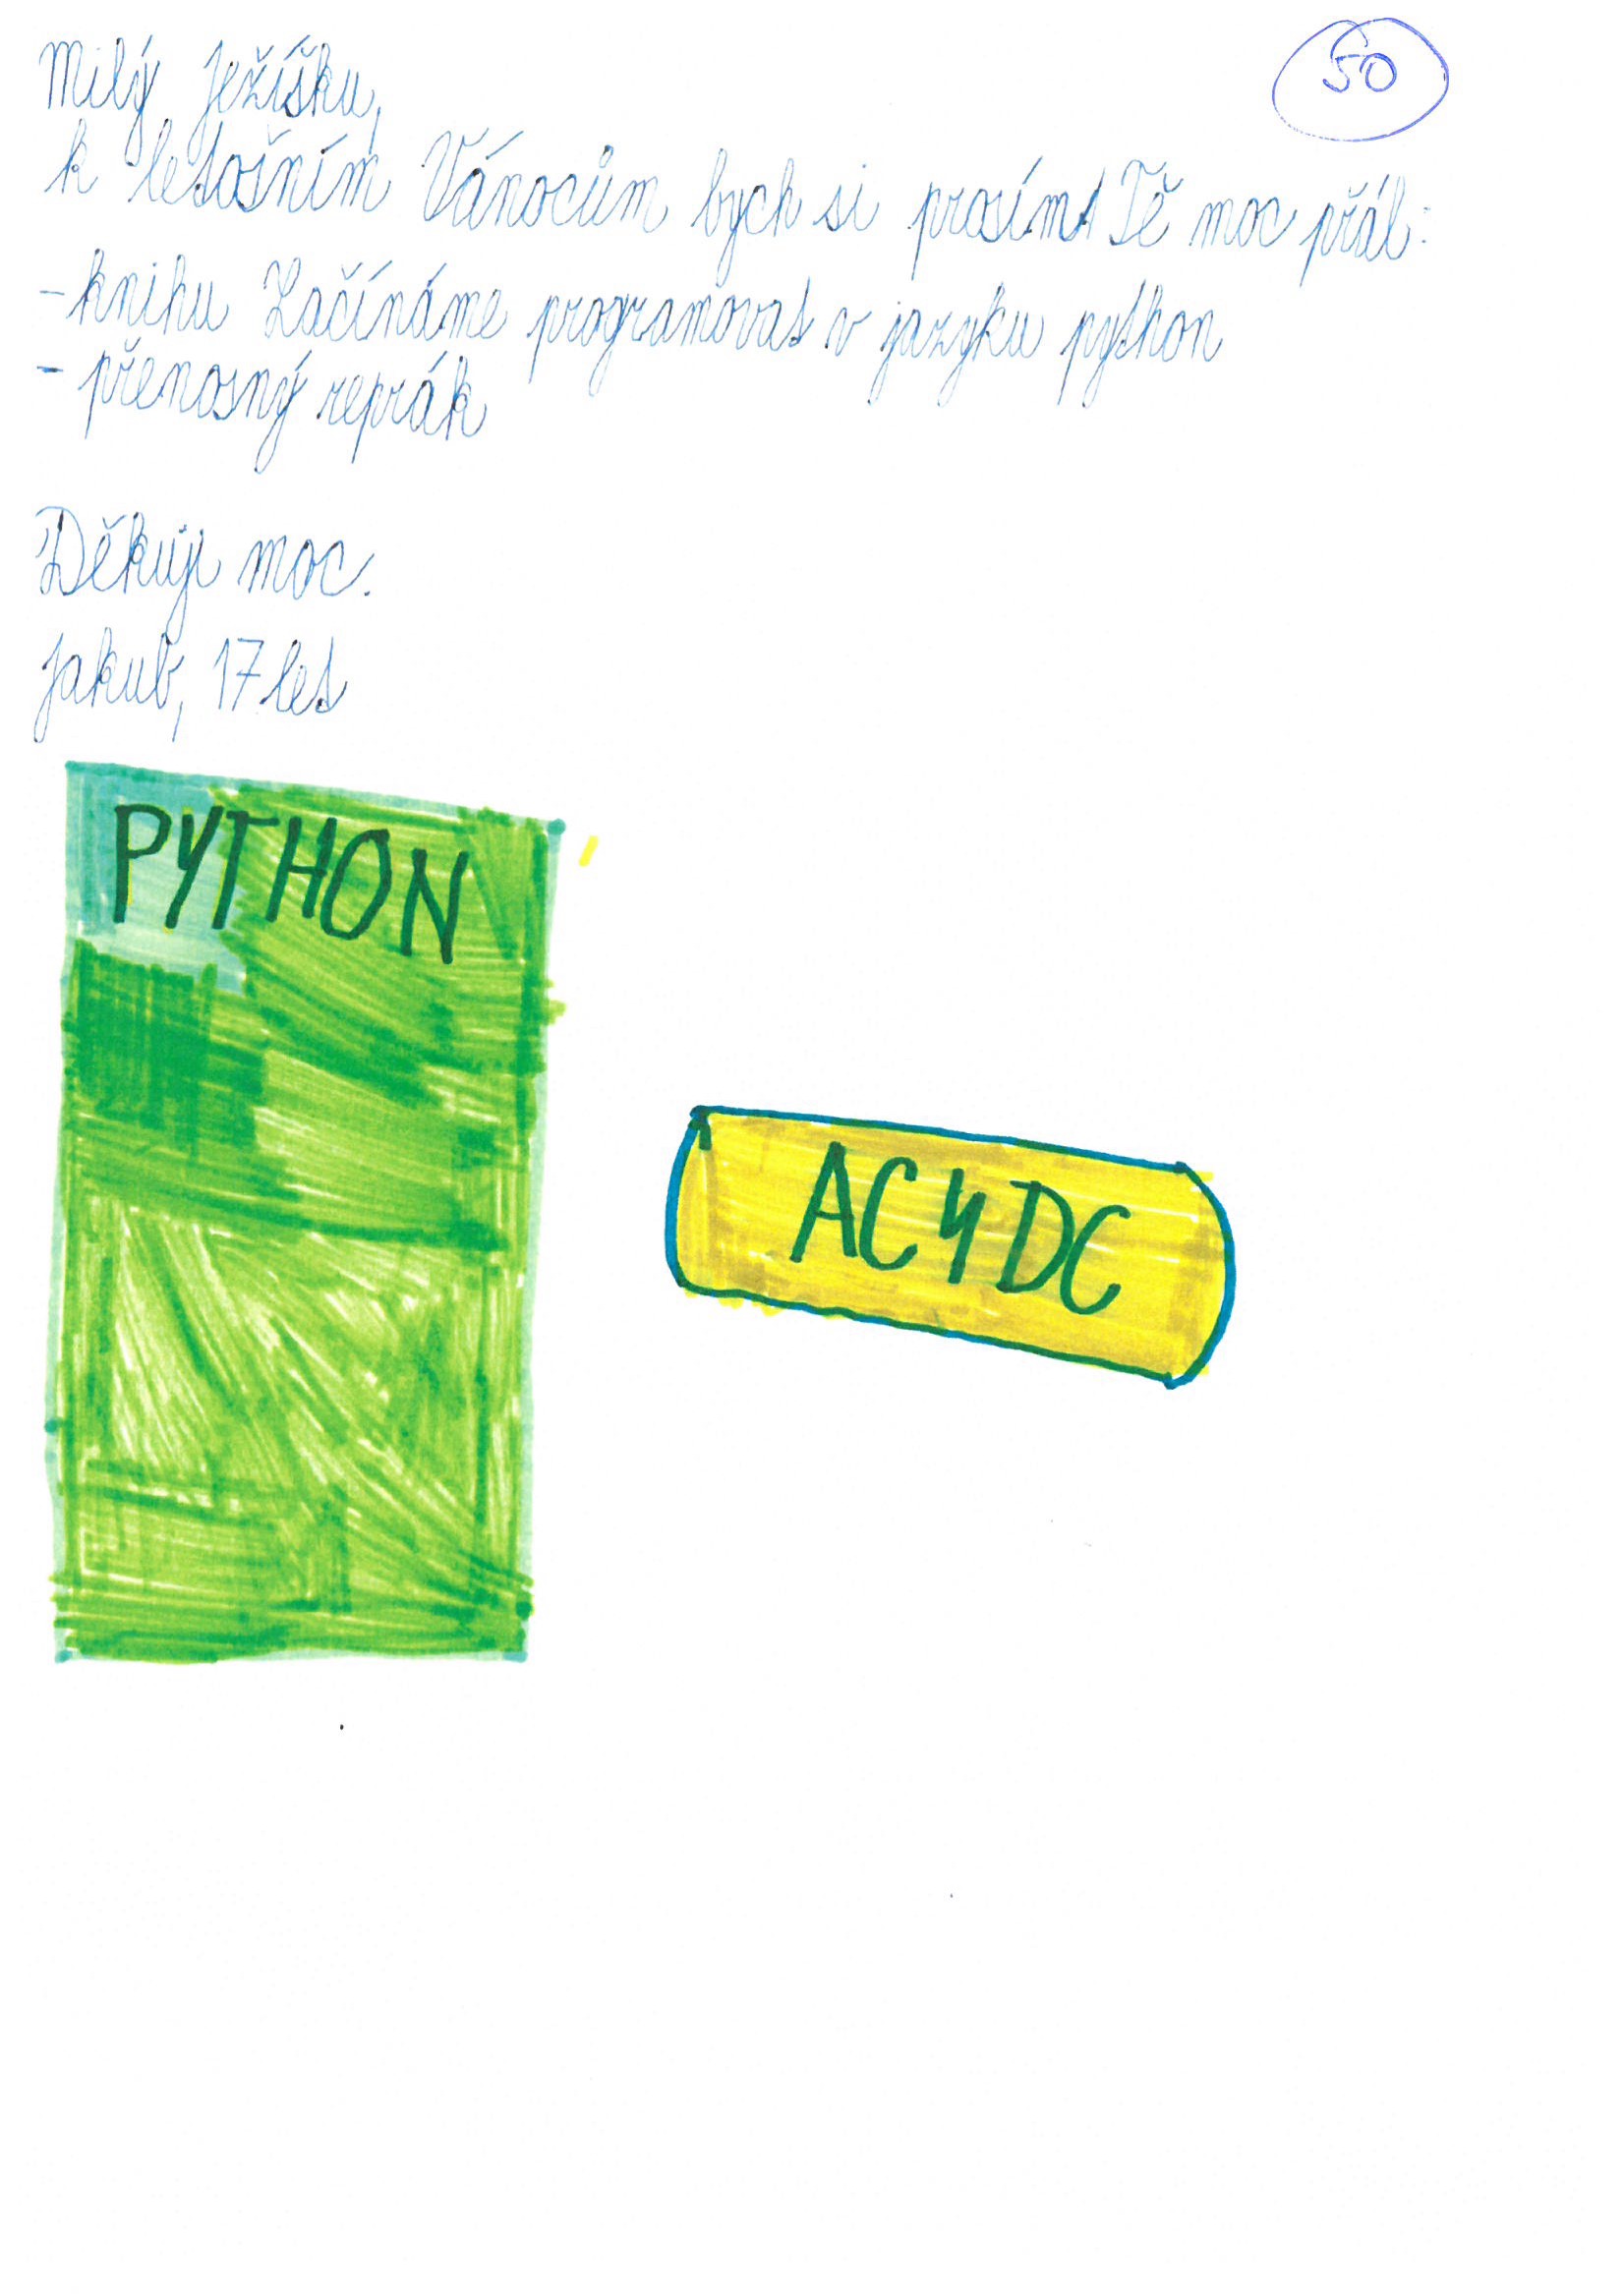 50
Milý Ježíšku,
k letošním Vánocům bych si prosím Tě moc přál:
- knihu Začínáme programovat v jazyku python
- přenosný reprák
Děkuji moc.
Jakub, 17 let
PYTHON
AC ϟ DC